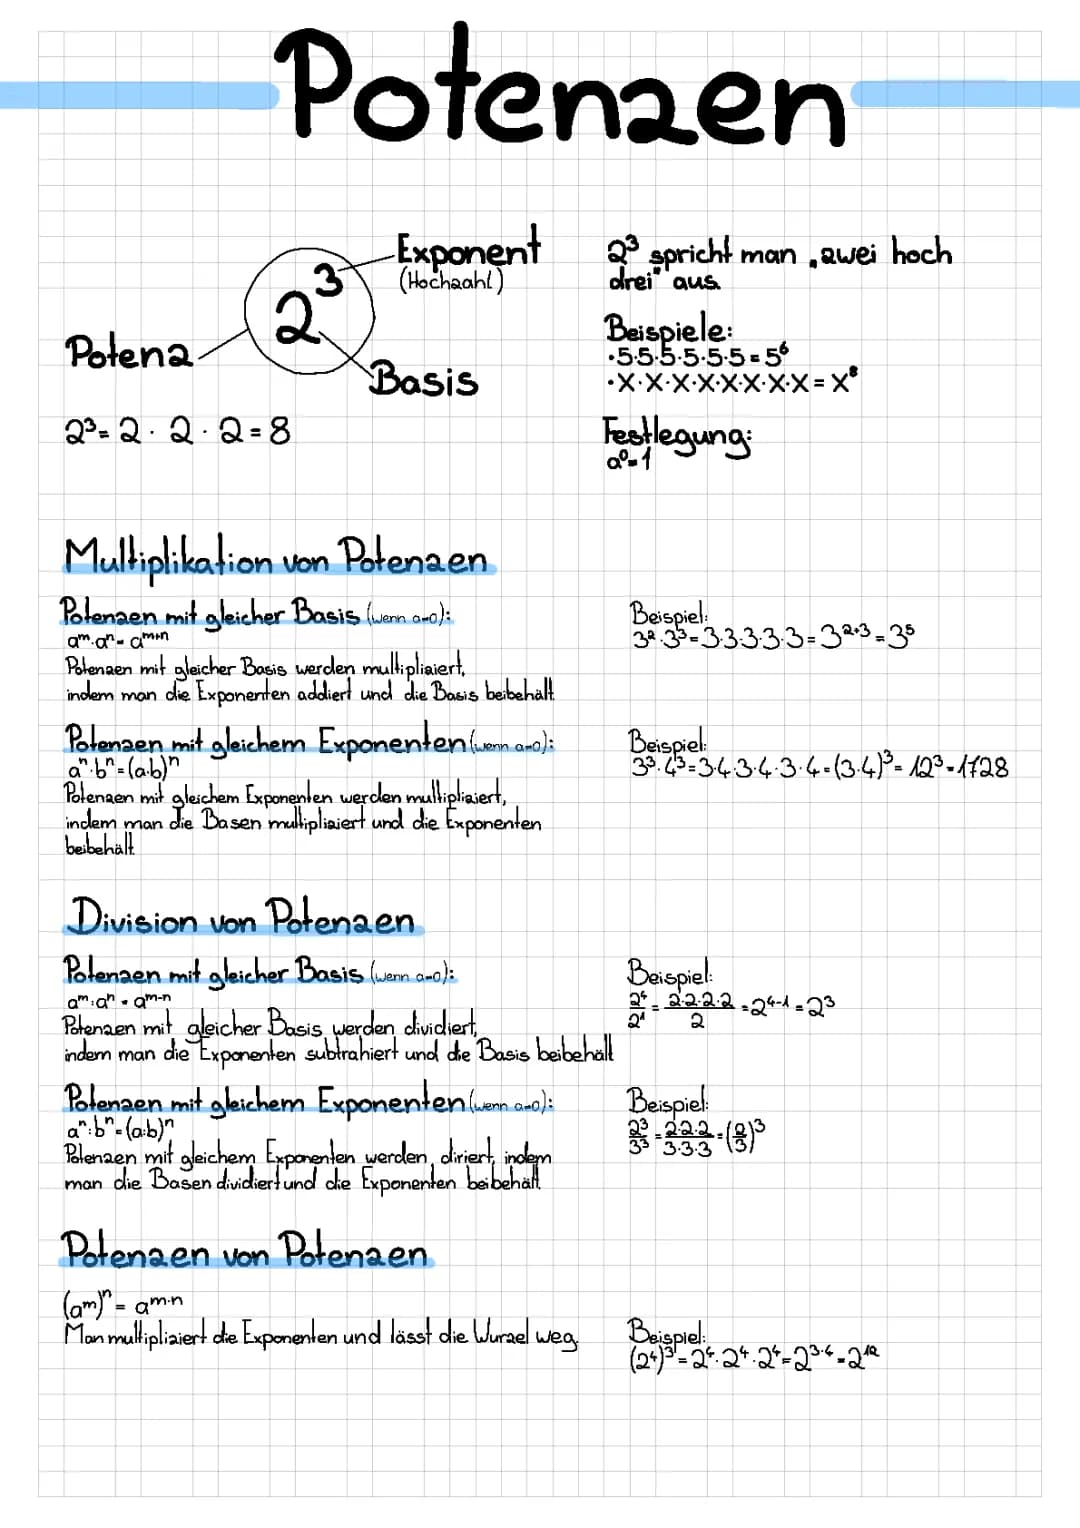 Potenzen
Exponent
(Hochzahl)
2³
Potenz
Basis
2³=2·2·2=8
2³ spricht man „zwei hoch
drei" aus.
Beispiele:
·5·5·5·5·5·5=5⁶
·x·x·x·x·x·x·x·x=x⁸
Festlegung:
a⁰=1
Multiplikation von Potenzen
Potenzen mit gleicher Basis (wenn a=0):
aᵐ·aⁿ=aᵐ⁺ⁿ
Potenzen mit gleicher Basis werden multipliziert,
indem man die Exponenten addiert und die Basis beibehält.
Beispiel:
3²·3³=3·3·3·3·3=3²⁺³=3⁵
Potenzen mit gleichem Exponenten (wenn a=0):
aⁿ·bⁿ=(a·b)ⁿ
Potenzen mit gleichem Exponenten werden multipliziert,
indem man die Basen multipliziert und die Exponenten
beibehält.
Beispiel:
3³·4³=3·4·3·4·3·4=(3·4)³=12³=1728
Division von Potenzen
Potenzen mit gleicher Basis (wenn a=0):
aᵐ:aⁿ=aᵐ⁻ⁿ
Potenzen mit gleicher Basis werden dividiert,
indem man die Exponenten subtrahiert und die Basis beibehält
Beispiel:
2⁴/2¹=2·2·2·2/2=2⁴⁻¹=2³
Potenzen mit gleichem Exponenten (wenn a=0):
aⁿ:bⁿ=(a:b)ⁿ
Potenzen mit gleichem Exponenten werden diriert, indem
man die Basen dividiert und die Exponenten beibehält.
Beispiel:
2³/3³=2·2·2/3·3·3=(2/3)³
Potenzen von Potenzen
(aᵐ)ⁿ=aᵐ·ⁿ
Man multipliziert die Exponenten und lässt die Wurzel weg.
Beispiel:
(2⁴)³=2⁴·2⁴·2⁴=2³·⁴=2¹²